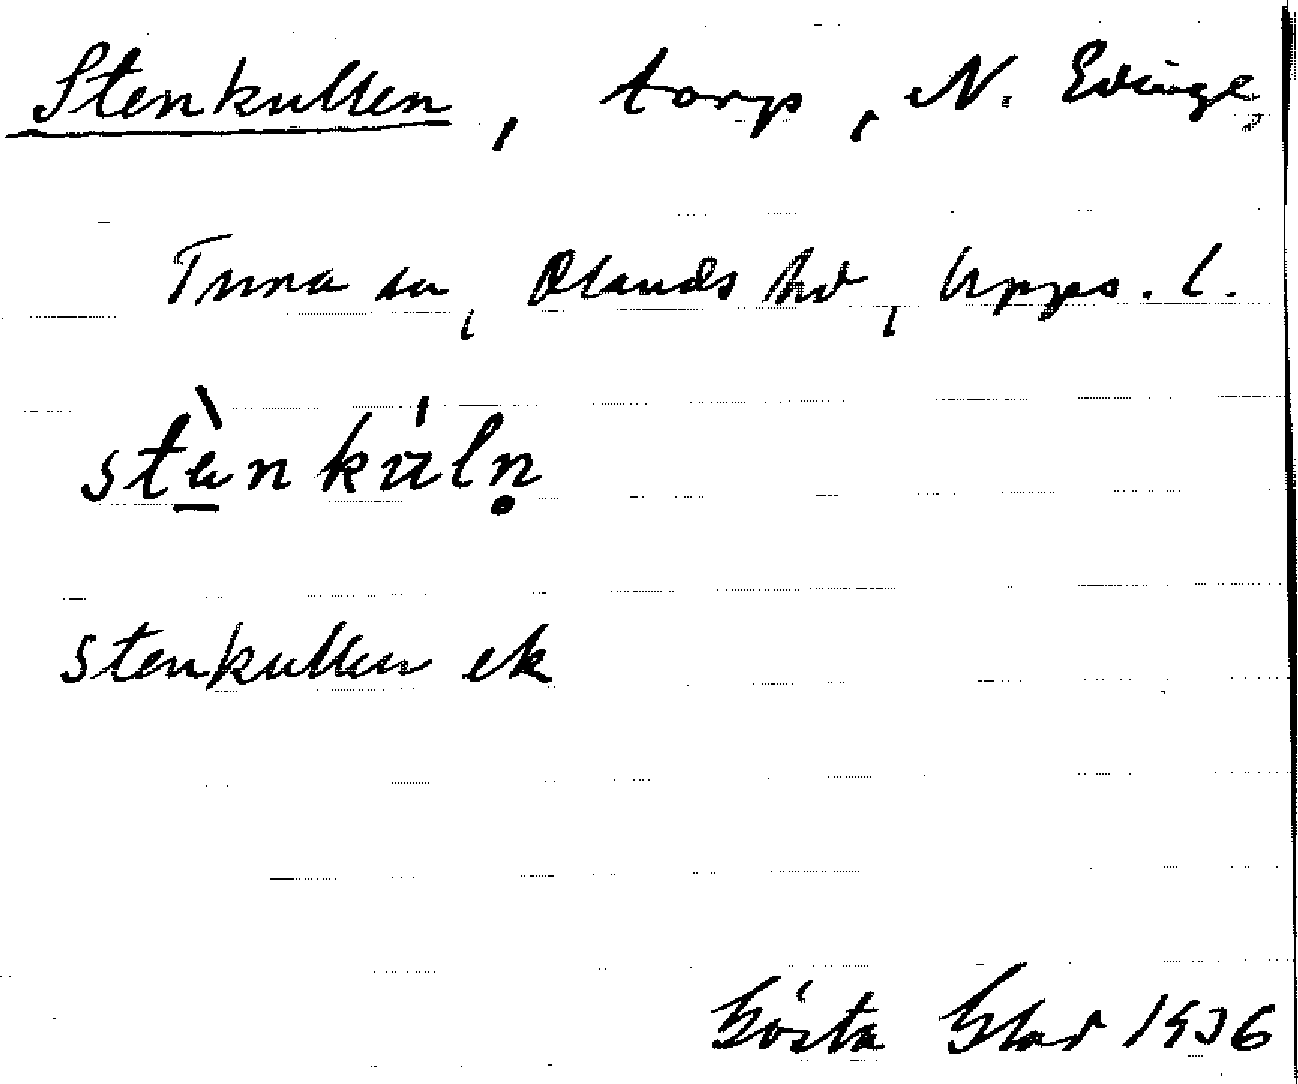 Stenkullen, torp, N. Edinge,
Tuna sn, Olands hd, Upps. l.
stènkúln̥
Stenkullen ek
Gösta 1936